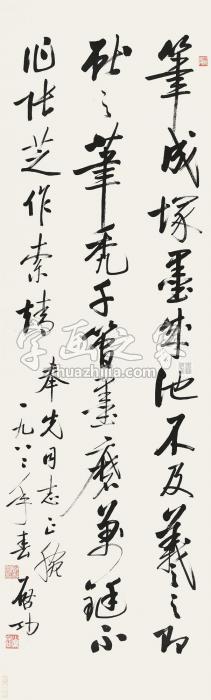 筆成塚墨成池不及羲之即
献之筆禿千管墨磨萬鋌不
作張芝作索靖
奉先同志正腕
一九八三年春 启功
字画之家
huazhijia.com